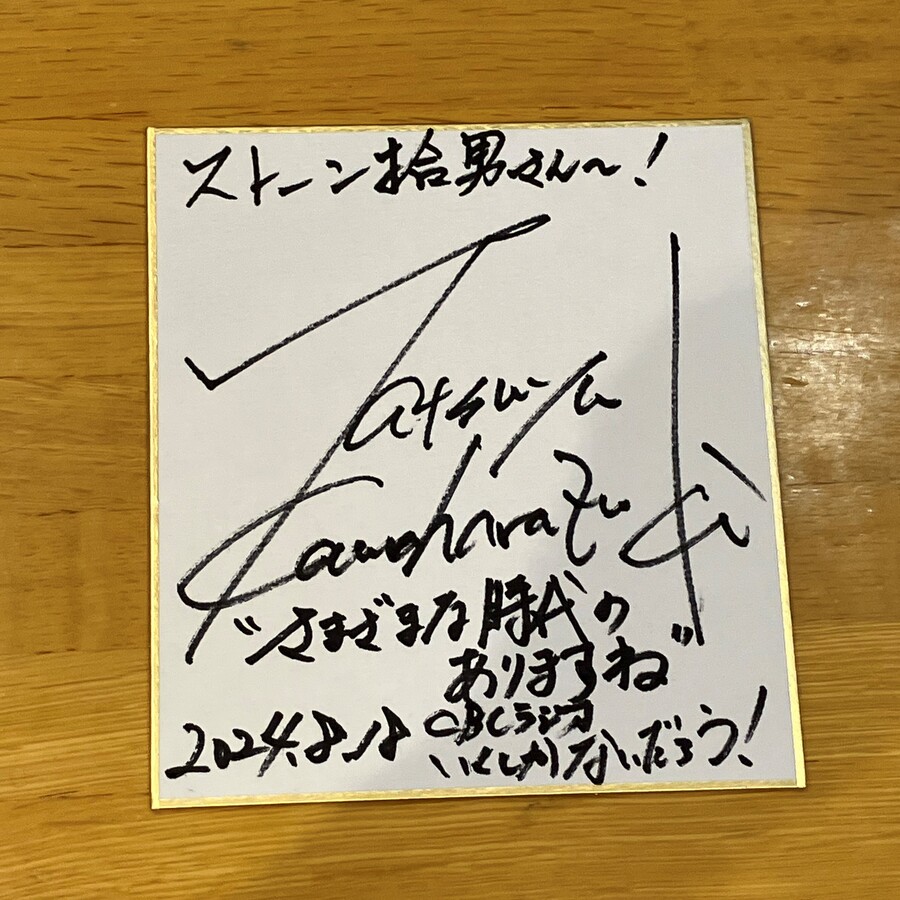 ストーン拾男さん〜!
Tatsuya
Kawahara
"さまざまな時代の
ありますね"
2024.8.18 CBCラジオ
いくしかないだろう!